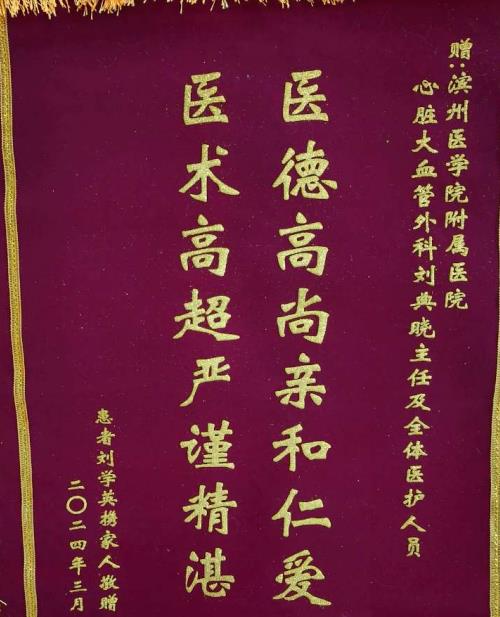 赠:滨州医学院附属医院
心脏大血管外科刘典晓主任及全体医护人员
医德高尚亲和仁爱
医术高超严谨精湛
患者刘学英携家人敬赠
二〇二四年三月